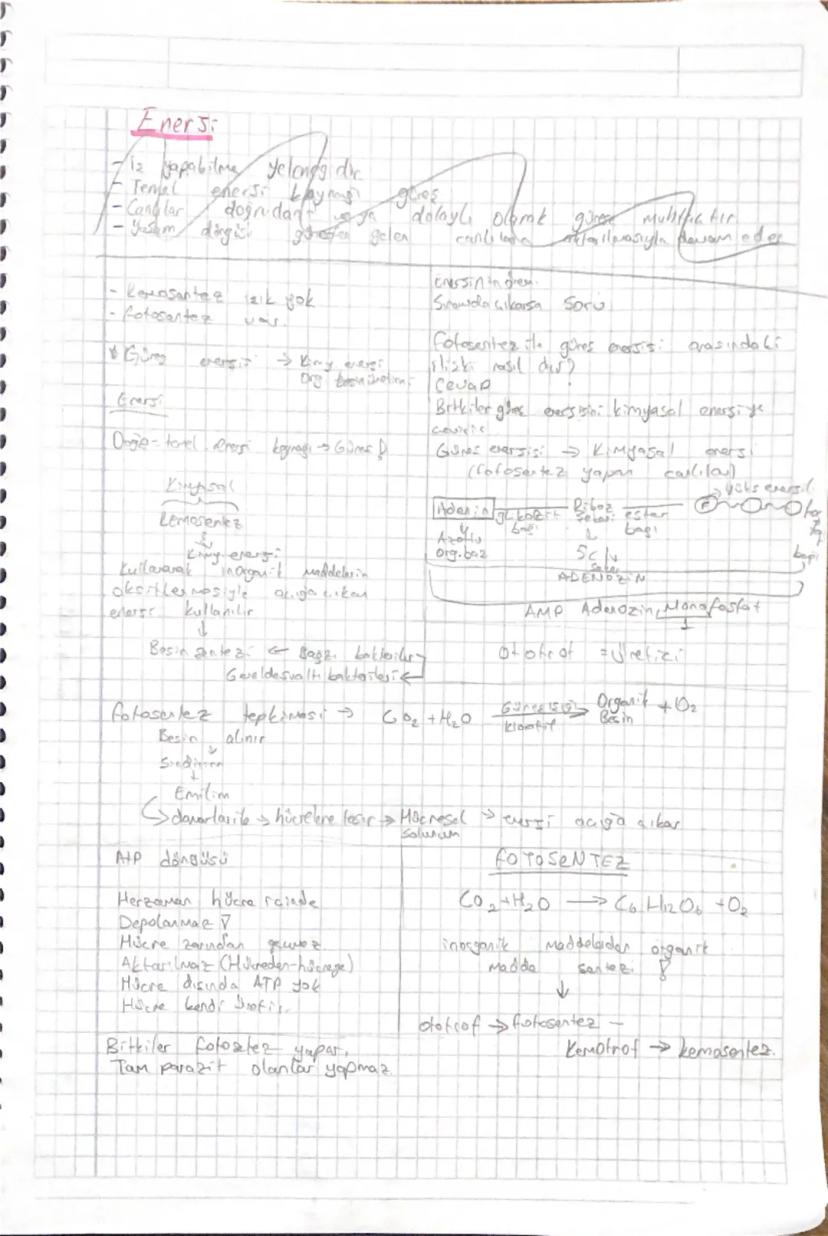 Enerji
- İş yapabilme yeteneğidir
- Temel enerji kaynağı güneş
- Canlılar doğrudan veya dolaylı olarak güneşe muhtaçtır
- Yaşam döngüsü güneşten gelen canlılara aktarılmasıyla devam eder
- Kemosentez ışık yok
- fotosentez var.
* Güneş enerjisi → Kimy enerji
Org besin üretimi
Enerji
Doğa - temel enerji kaynağı → Güneş !
Kimyasal
Kemosentez
Kimy enerji
Kullanarak inorganik maddelerin
oksitlenmesiyle açığa çıkan
enerji kullanılır
↓
Besin sentezi ← Bazı bakteriler
Genelde bakterileri ←
Sınavda çıkarsa Soru
Fotosentez ile güneş enerjisi arasındaki
ilişki nasıldır?
Cevap
Bitkiler güneş enerjisini kimyasal enerjiye
çevirir
Güneş enerjisi → Kimyasal enerji
(Fotosentez yapan canlılar)
→ yüks enerjili
Adenin glikozit bağı Riboz şekeri ester bağı P
Azotlu
Org. baz
5C lu
şeker
bağı
ADENOZİN
AMP Adenozin Monofosfat
1
Ototrof = Üretici
fotosentez tepkimesi → CO2 + H2O Güneş ışığı → Organik + O2
klorofil Besin
Besin alınır
↓
Sindirim
↓
Emilim
→ damarlarla → hücrelere taşır → Hücresel → enerji açığa çıkar
solunum
ATP döngüsü
Herzaman hücre içinde
Depolanmaz !
Hücre zarından geçmez
Aktarılmaz (Hücreden-hücreye)
Hücre dışında ATP yok
Hücre kendi üretir.
Bitkiler fotosztez yapar,
Tam parazit olanlar yapmaz
FOTOSENTEZ
CO2 + H2O → C6H12O6 + O2
inorganik maddelerden organik
madde sentezi !
↓
ototrof → fotosentez -
Kemotrof → kemosentez.